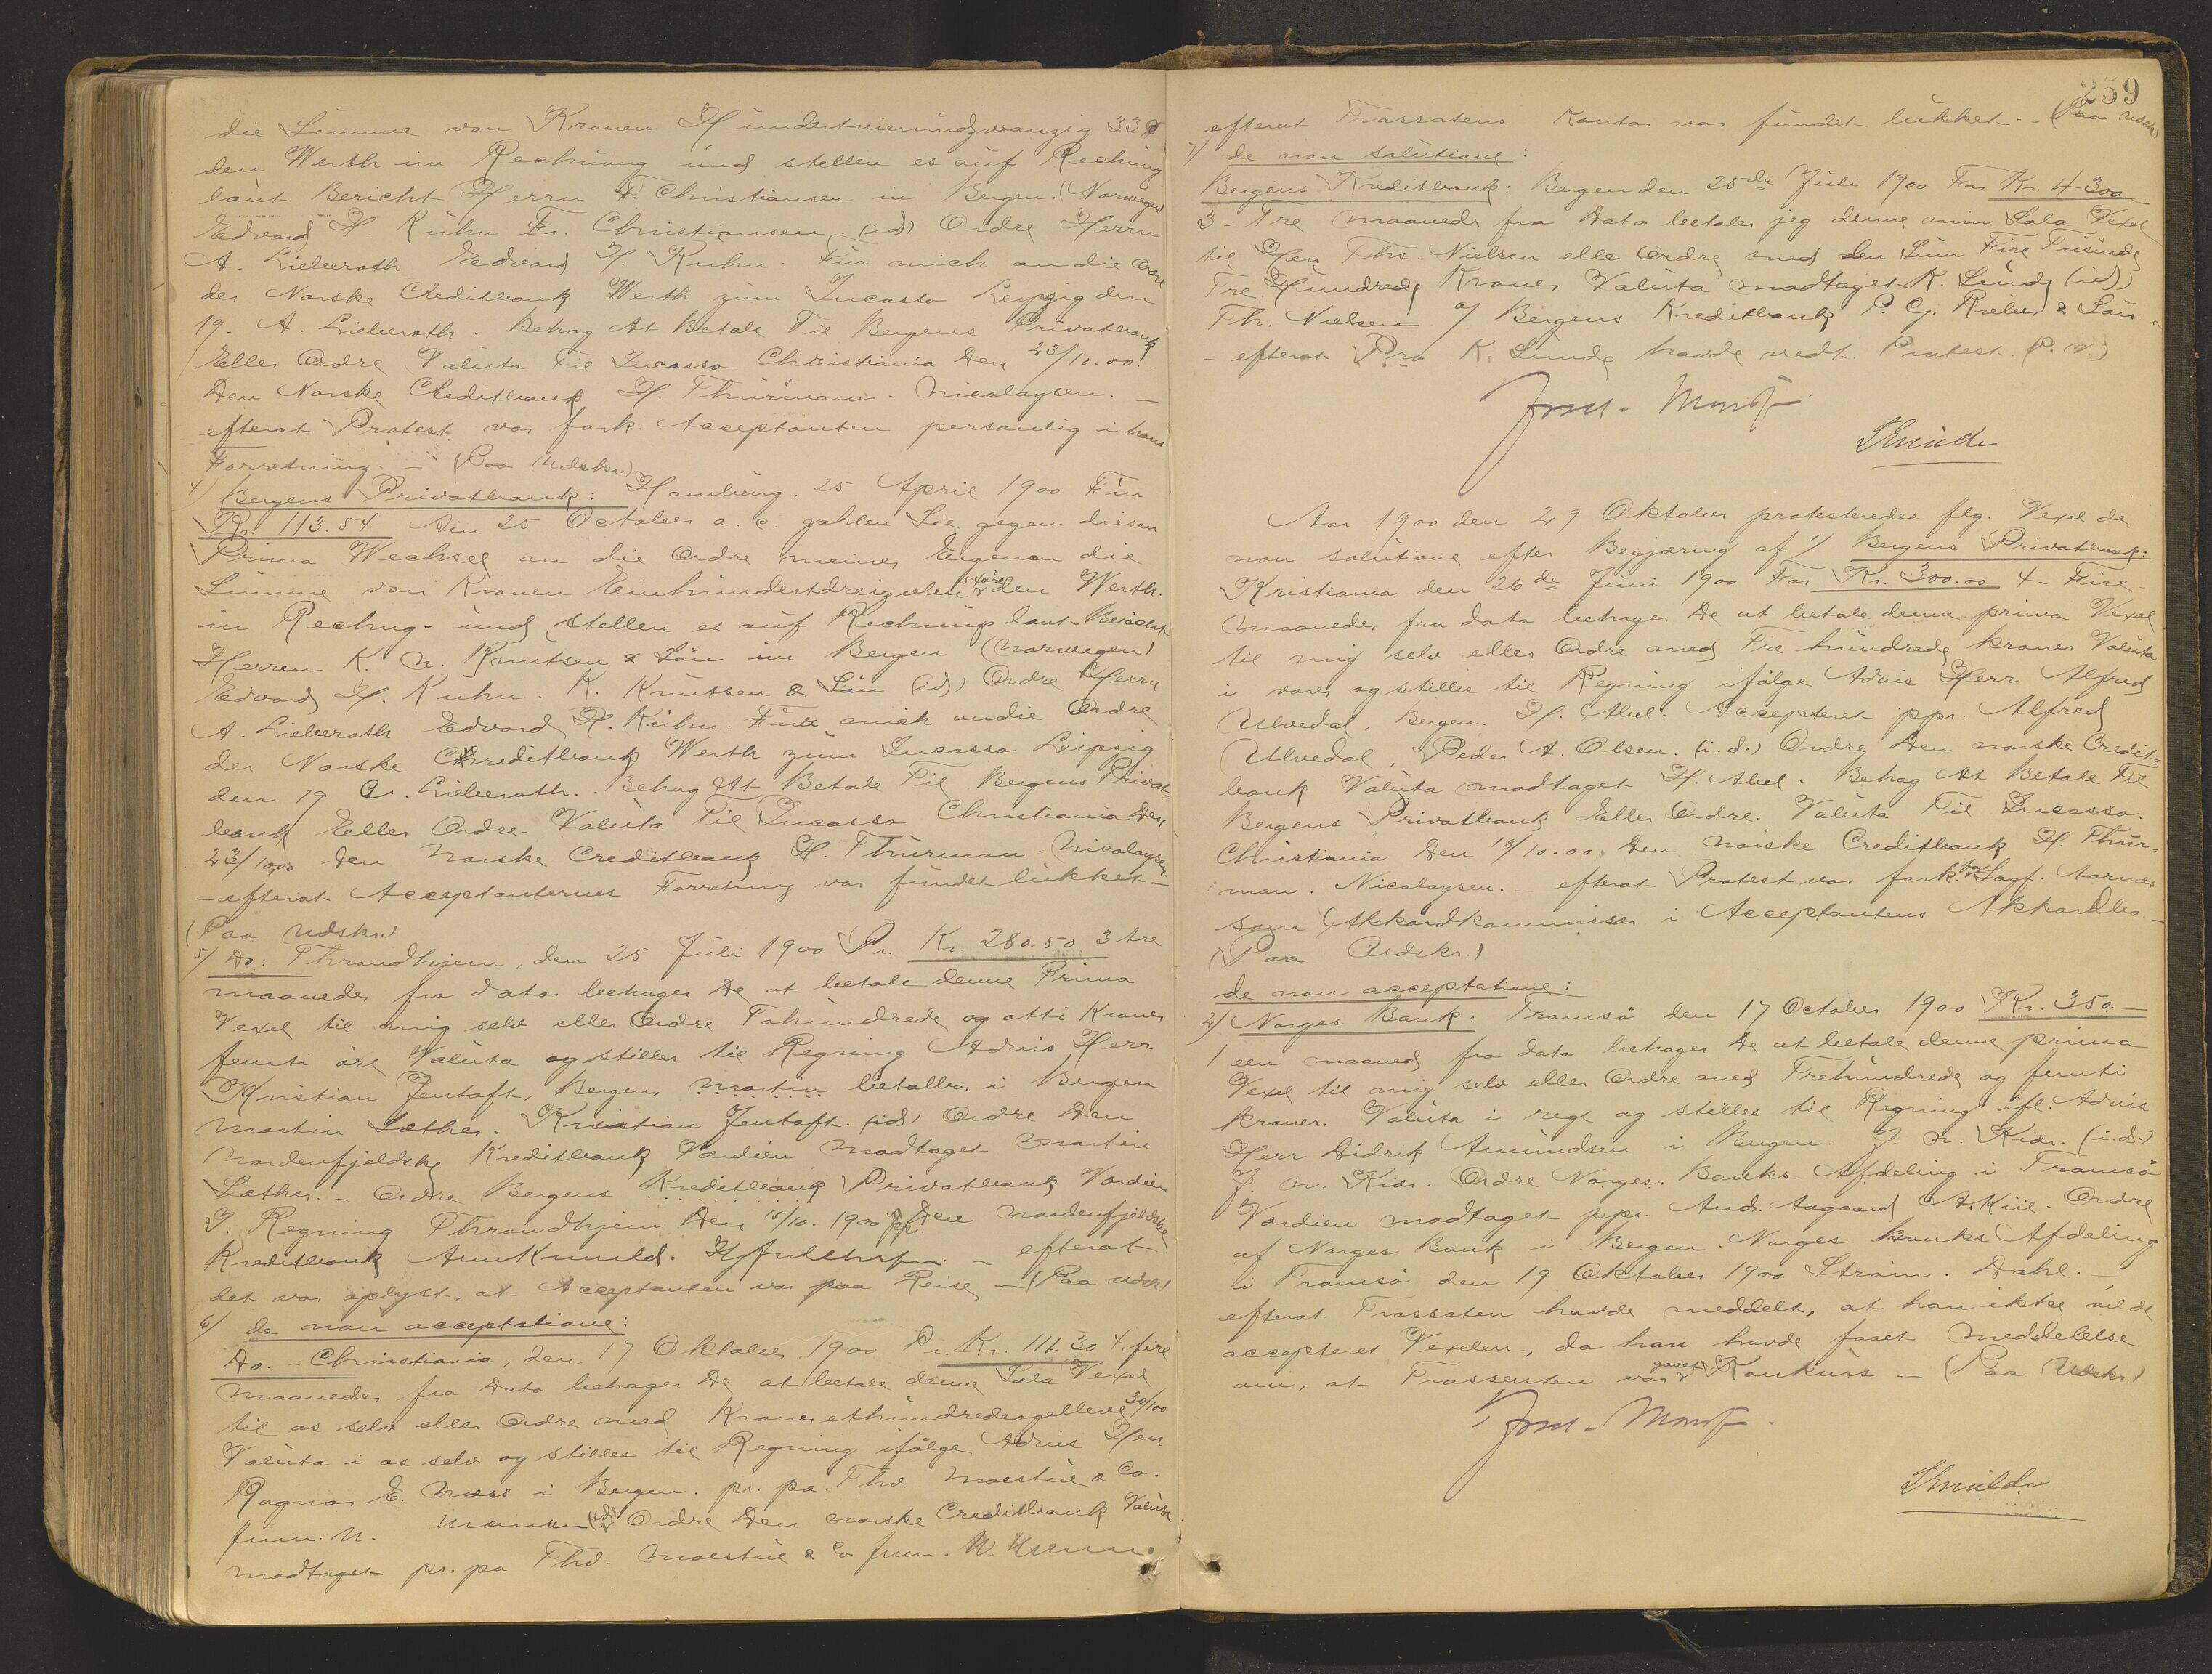 die Summe von Kronen Hundertvierundzwanzig 33
den Werth in Rechnung und stellen es auf Rechnug
laut Bericht Herrn F. Christiansen in Bergen. (Norwegen)
Edvard H. Kühn Fr. Christiansen. (id) Ordre Herrn
A. Lieberoth Edvard H. Kuhn. Für mich an die Ordre
der Norske Creditbank Werth zum Incasso Leipzig den
19. A. Lieberoth. Behag At Betale Til Bergens Privatbank
Eller Ordre Valuta Til Incasso Christiania Den 23/10.00.
Den Norske Creditbank H. Thürman. Nicolaysen. —
efterat Protest var fork. Acceptanten personlig i hans
Forretning. — (Paa Udskr.)
4) Bergens Privatbank: Hamburg. 25 April 1900 Für
Kr. 113.54 Am 25 October a. c. zahlen Sie gegen diesen
Prima Wechsel an die Ordre meiner Eigenen die
Summe von Kronen Einhundertdreizehn 54 øre den Werth.
in Rechng. und stellen es auf Rechnung laut Bericht
Herren K. N. Knutsen & Sön in Bergen (Norwegen)
Edvard H. Kuhn. K. Knutsen & Sön (id) Ordre Herrn
A. Lieberoth Edvard H. Kühn. Für mich an die Ordre
der Norske Creditbank Werth zum Incasso Leipzig
den 19 A. Lieberoth. Behag At Betale Til Bergens Privat-
bank Eller Ordre. Valuta Til Incasso Christiania Den
23/10.00 Den Norske Creditbank H. Thürman. Nicolaysen.
— efterat Acceptanternes Forretning var fundet lukket —
(Paa Udskr.)
5) Do: Throndhjem, den 25 Juli 1900 Pr. Kr. 280.50 3 tre
maaneder fra dato behager De at betale denne Prima
Vexel til mig selv eller Ordre Tohundrede og otti Kroner
femti öre Valuta og stilles til Regning Advis Herr
Kristian Jentoft, Bergen, Martin betalbar i Bergen
Martin Sæther. Kristian Jentoft. (id) Ordre Den
Nordenfjeldske Kreditbank Værdien Modtaget Martin
Sæther. — Ordre Bergens Kreditbank Privatbank Værdien
I Regning Throndhjem Den 15/10. 1900 ppr. Den Nordenfjeldske
Kreditbank — efterat
det var oplyst, at Acceptanten var paa Reise — (Paa Udskr)
6) de non acceptatione:
Do. — Christiania, den 17 Oktober 1900 Pr. Kr. 111.30 4. fire
maaneder fra Dato behager De at betale denne Sola Vexel
til os selv eller Ordre med Kroner ethundredeogelleve 30/100
Valuta i os selv og stilles til Regning ifölge Advis Herr
Ragnar E. Næss i Bergen. pr. pa. Thv. Moestue & Co.
Junr. N. (id) Ordre Den norske Creditbank Valuta
modtaget pr. pa Thv. Moestue & Co Junr. N.
259
efterat Trassatens Kontor var fundet lukket. — (Paa Udskr)
7) de non solutione:
Bergens Kreditbank: Bergen den 25de Juli 1900 For Kr. 4300
3 — Tre maaneder fra Dato betaler jeg denne min Sola Vexel
til Herr Ths. Nielsen eller Ordre med den Sum Fire Tusinde
Tre Hundrede Kroner Valuta modtaget K. Sunde (id)
Th. Nielsen Bergens Kreditbank P. G. Rieber & Sön.
— efterat Pra K. Sunde havde vedt. Protest. (P. U.)
Aar 1900 den 29 Oktober protesteredes flg. Vexel de
non solutione efter Begjæring af 1) Bergens Privatbank:
Kristiania den 26de Juni 1900 For Kr. 300.00 4 — Fire —
maaneder fra dato behager De at betale denne prima Vexel
til mig selv eller Ordre med Tre hundrede kroner Valuta
i varer og stilles til Regning ifölge Advis Herr Alfred
Ulvedal, Bergen. H. Abel. Accepteret ppr. Alfred
Ulvedal, Peder A. Olsen. (i.d.) Ordre Den norske Credit-
bank Valuta modtaget H. Abel. Behag At Betale Til
Bergens Privatbank Eller Ordre. Valuta Til Incasso.
Christiania Den 18/10.00. Den Norske Creditbank H. Thür-
man. Nicolaysen. — efterat Protest var fork. for Sagf. Aarnæs
som Akkordkommissær i Acceptantens Akkordbo. —
(Paa Udskr.)
de non acceptatione:
2) Norges Bank: Tromsö den 17 October 1900 Kr. 350. —
1 een maaned fra dato behager De at betale denne prima
Vexel til mig selv eller Ordre med Trehundrede og femti
kroner. Valuta i regt og stilles til Regning ifl. Advis
Herr Didrik Amundsen i Bergen. J. N. Kiær. (i.d.)
J. N. Kiær. Ordre Norges Banks Afdeling i Tromsö
Værdien modtaget ppr. Andr. Aagaard A. Kiil. Ordre
af Norges Bank i Bergen. Norges Banks Afdeling
i Tromsö den 19 Oktober 1900 Ström. Dahl. —
efterat Trassaten havde meddelt, at han ikke vilde
accepteret Vexelen, da han havde faaet Meddelelse
om, at Trassenten var gaaet Konkurs — (Paa Udskr.)